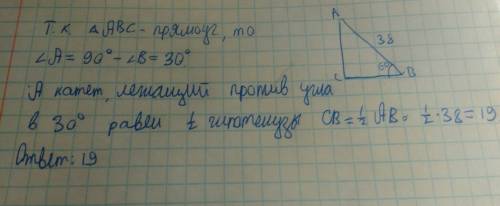 Т.к. △ABC - прямоуг, то
∠A = 90° - ∠B = 30°
А катет, лежащий против угла
в 30° равен ½ гипотенузы CB = ½ AB = ½ · 38 = 19
Ответ: 19
A
38
60°
C
B